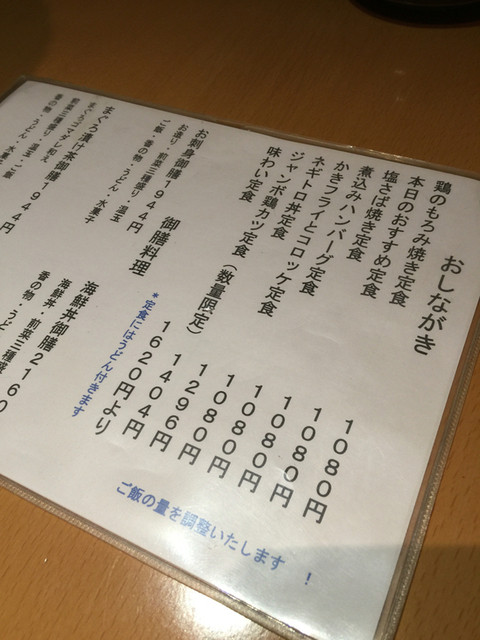 おしながき
鶏のもろみ焼き定食 1080円
本日のおすすめ定食 1080円
塩さば焼き定食 1080円
煮込みハンバーグ定食 1080円
かきフライとコロッケ定食 1080円
ネギトロ丼定食 1296円
ジャンボ鶏カツ定食(数量限定) 1404円
味わい定食 1620円より
*定食にはうどん付きます
御膳料理
お刺身御膳1944円
お造り・前菜三種盛り・温玉
ご飯・香の物・うどん・水菓子
まぐろ漬け茶御膳1944円
まぐろゴマダレ和え
前菜三種盛り・温玉・ご飯
香の物・うどん・水菓子
海鮮丼御膳2160
海鮮丼・前菜三種盛
香の物・うど
ご飯の量を調整いたします！